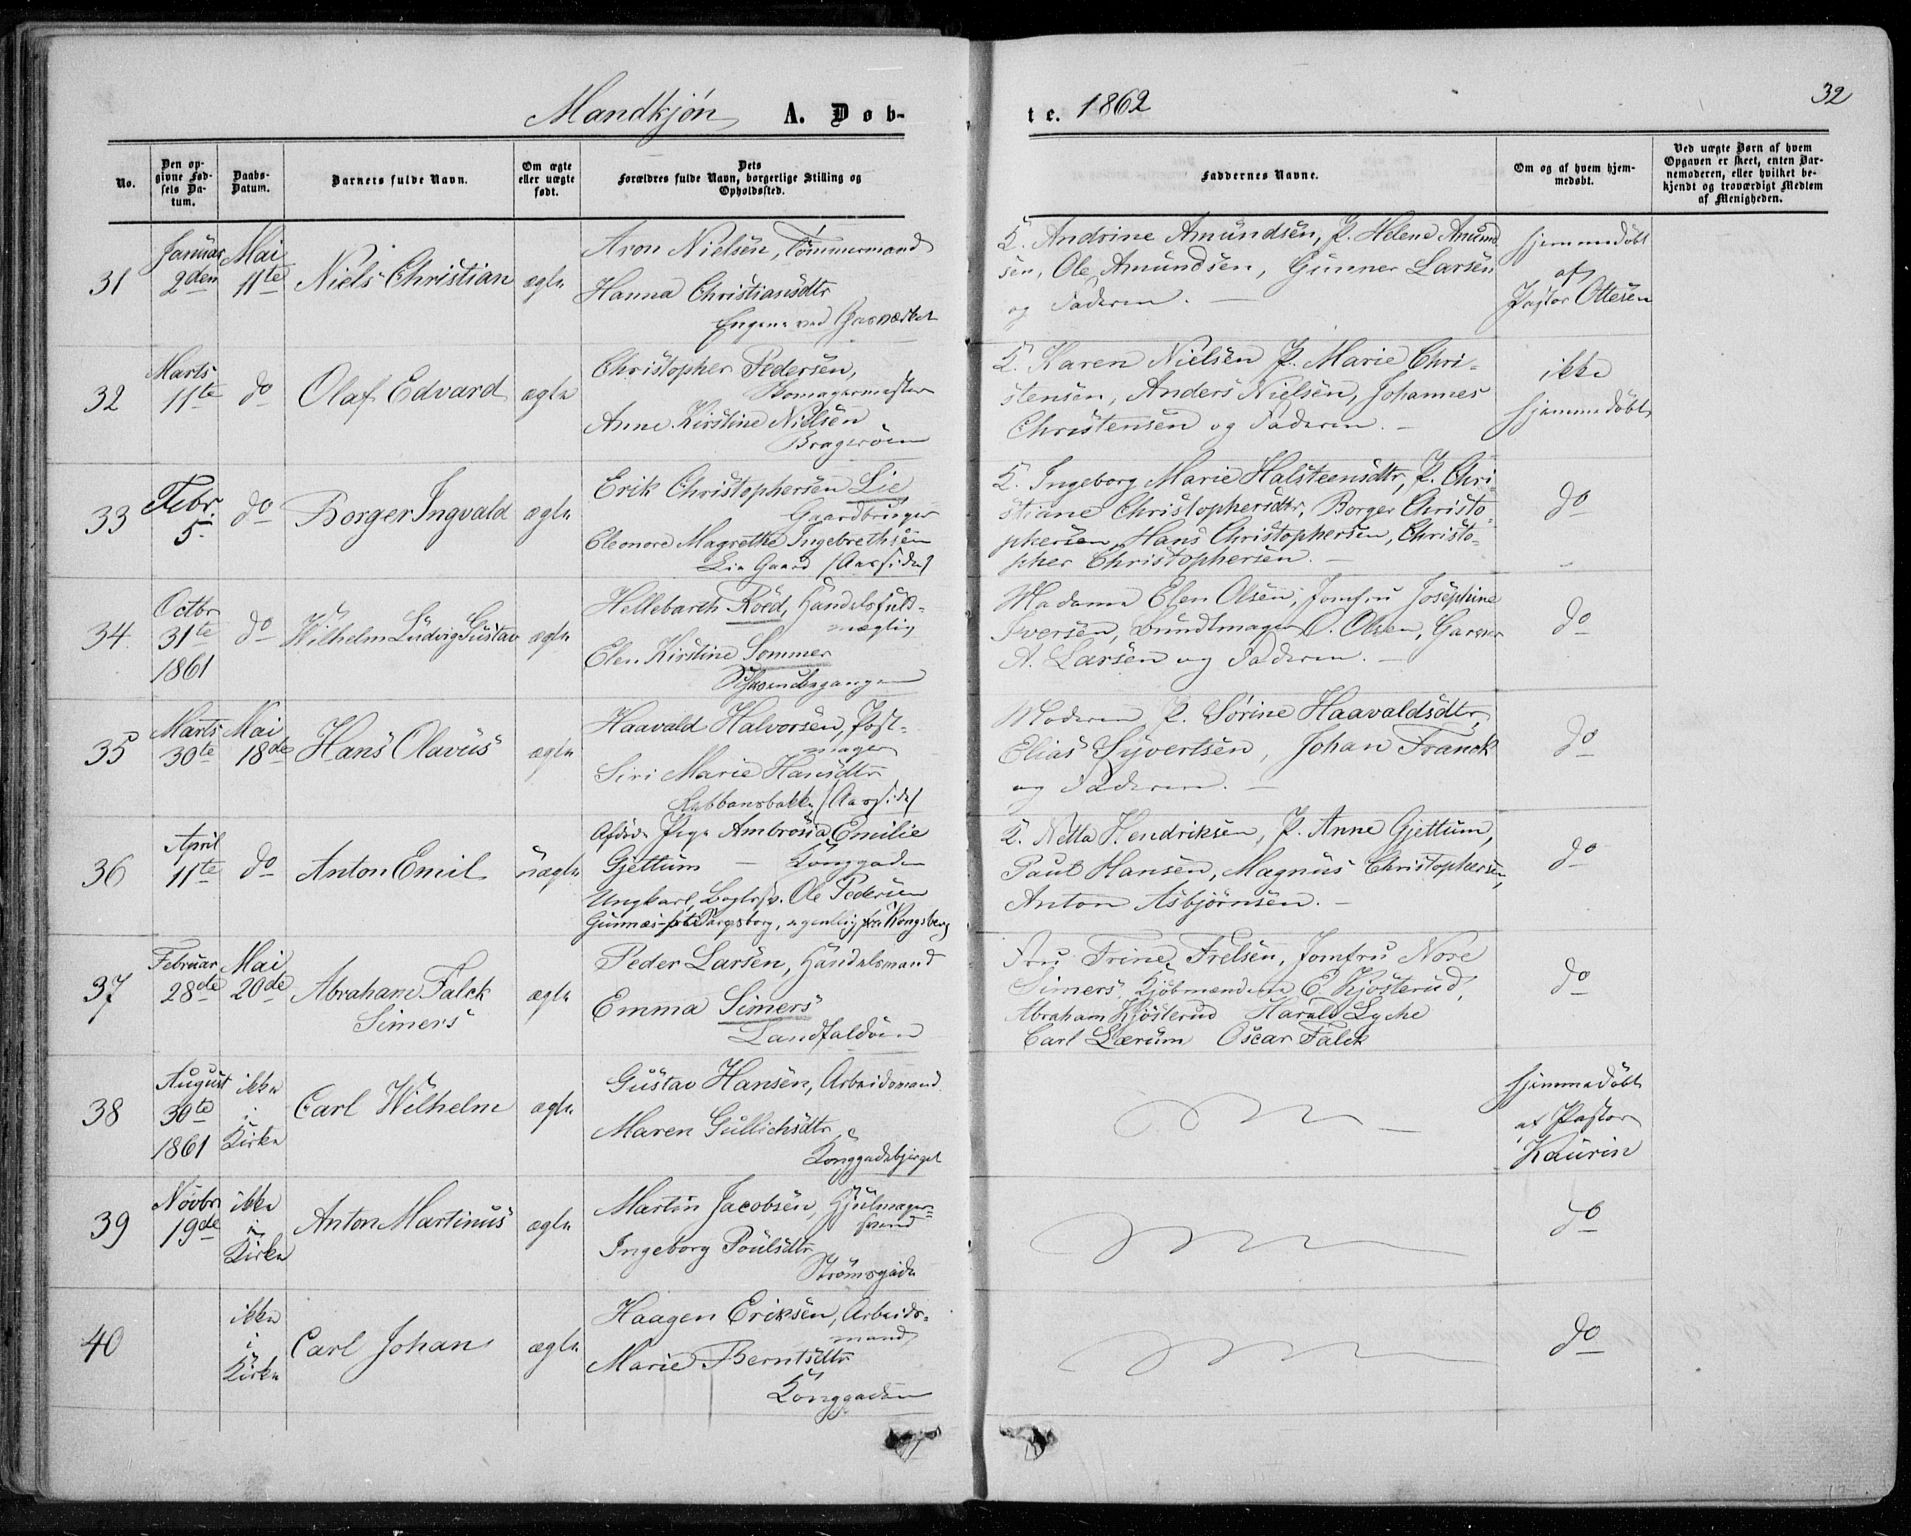 Mandkjøn A. Døb-
te. 1862
32
No.
Den op-
givne Fød-
sels Da-
tum.
Daabs-
Datum.
Barnets fulde Navn.
Om ægte
eller uægte
født.
Dets
Forældres fulde Navn, borgerlige Stilling og
Opholdssted.
Faddernes Navne.
Om og af hvem hjem-
medøbt.
Ved uægte Børn af hvem
Opgaven er skeet, enten Bar-
nemoderen, eller hvilket be-
kjendt og troværdigt Medlem
af Menigheden.
31
Januar
2den
Mai
11te
Niels Christian
ægte
Aron Nielsen, Tømmermand
Hanna Christiansdtr
Engene ved Gasværket
K. Andrine Amundsen, P. Helene Amund
sen, Ole Amundsen, Gunner Larsen
og Faderen.
hjemmedøbt
af
Pastor Ottesen
32
Marts
11te
do
Olaf Edvard
ægte
Christopher Pedersen,
Skomagermester
Anne Kirstine Nielsen
Bragerøen
K. Karen Nielsen P. Marie Chri-
stensen, Anders Nielsen, Johannes
Christensen og Faderen.
ikke
hjemmedøbt
33
Febr.
5.
do
Borger Ingvald
ægte
Erik Christophersen Lie
Gaardbruger
Eleonore Magrethe Ingebrethsen
Lie Gaard (Aassiden)
K. Ingeborg Marie Halsteensdtr, P. Chri-
stiane Christophersdtr, Borger Christo-
phersen, Hans Christophersen, Christo-
pher Christophersen.
do
34
Octbr
31te
1861
do
Wilhelm Ludvig Gustav
ægte
Hellebarth Röed, Handelsfuld-
mægtig
Elen Kirstine Sommer
Madame Elen Olsen, Jomfru Josephine
Iversen, Bundtmager O. Olsen, Garver
A. Larsen og Faderen.
do
35
Marts
30te
Mai
18de
Hans Olavus
ægte
Haavald Halvorsen, Post-
mager
Siri Marie Hansdtr
Kobbansbakke (Aassiden)
Moderen, P. Sörine Haavaldsdtr,
Elias Syvertsen, Johan Franck
og Faderen.
do
36
April
11te
do
Anton Emil
uægte
Afdøde Pige Ambrosia Emilie
Gjettum Konggaden
Ungkarl, Ole Pedersen
K. Netta Hendriksen, P. Anne Gjettum,
Paul Hansen, Magnus Christophersen,
Anton Asbjörnsen.
do
37
Februar
28de
Mai
20de
Abraham Falck
Simers
ægte
Peder Larsen, Handelsmand
Emma Simers
Landfaldöen
Fru Trine Frelsen, Jomfru Nore
Simers, Kjøbmændene E. Kjosterud,
Abraham Kjösterud Harald Lyche
Carl Lærum Oscar Falck
do
38
August
30te
1861
ikke
i
Kirke
Carl Wilhelm
ægte
Gustav Hansen, Arbeidsmand
Maren Gullichsdtr
Konggadebjerget
hjemmedøbt
af Pastor
Kaurin
39
Novbr
19de
ikke
i
Kirke
Anton Martinus
ægte
Martin Jacobsen, Hjulmager-
svend
Ingeborg Poulsdtr
Strömsgade
do
40
ikke
i
Kirke
Carl Johan
ægte
Haagen Eriksen, Arbeids-
mand
Marie Berntsdtr
Konggaden
do